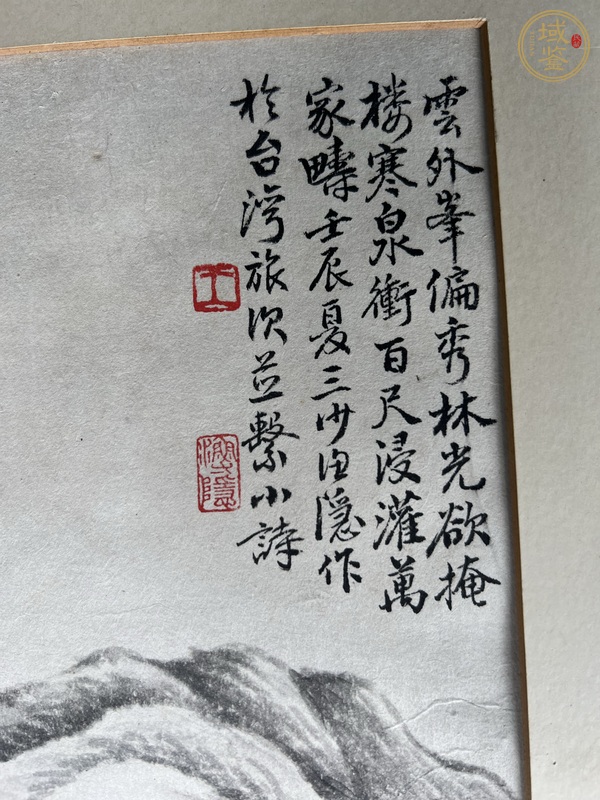 雲外峯偏秀林光欲掩
楼寒泉衝百尺浸灌萬
家疇壬辰夏三隐作
於台灣旅次並繫小詩
王
隱
域鉴